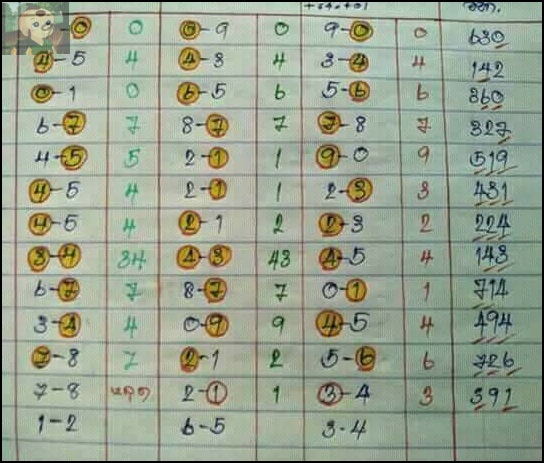 0 0 0-9 0 9-0 0 630
4-5 4 4-3 4 3-4 4 142
0-1 0 6-5 6 5-6 6 360
6-7 7 8-7 7 7-8 7 327
4-5 5 2-1 1 9-0 9 519
4-5 4 2-1 1 2-3 3 431
4-5 4 2-1 2 2-3 2 224
3-4 34 4-3 43 4-5 4 143
6-7 7 8-7 7 0-1 1 714
3-4 4 0-9 9 4-5 4 494
7-8 7 2-1 2 5-6 6 726
7-8 หลุด 2-1 1 3-4 3 391
1-2 6-5 3-4